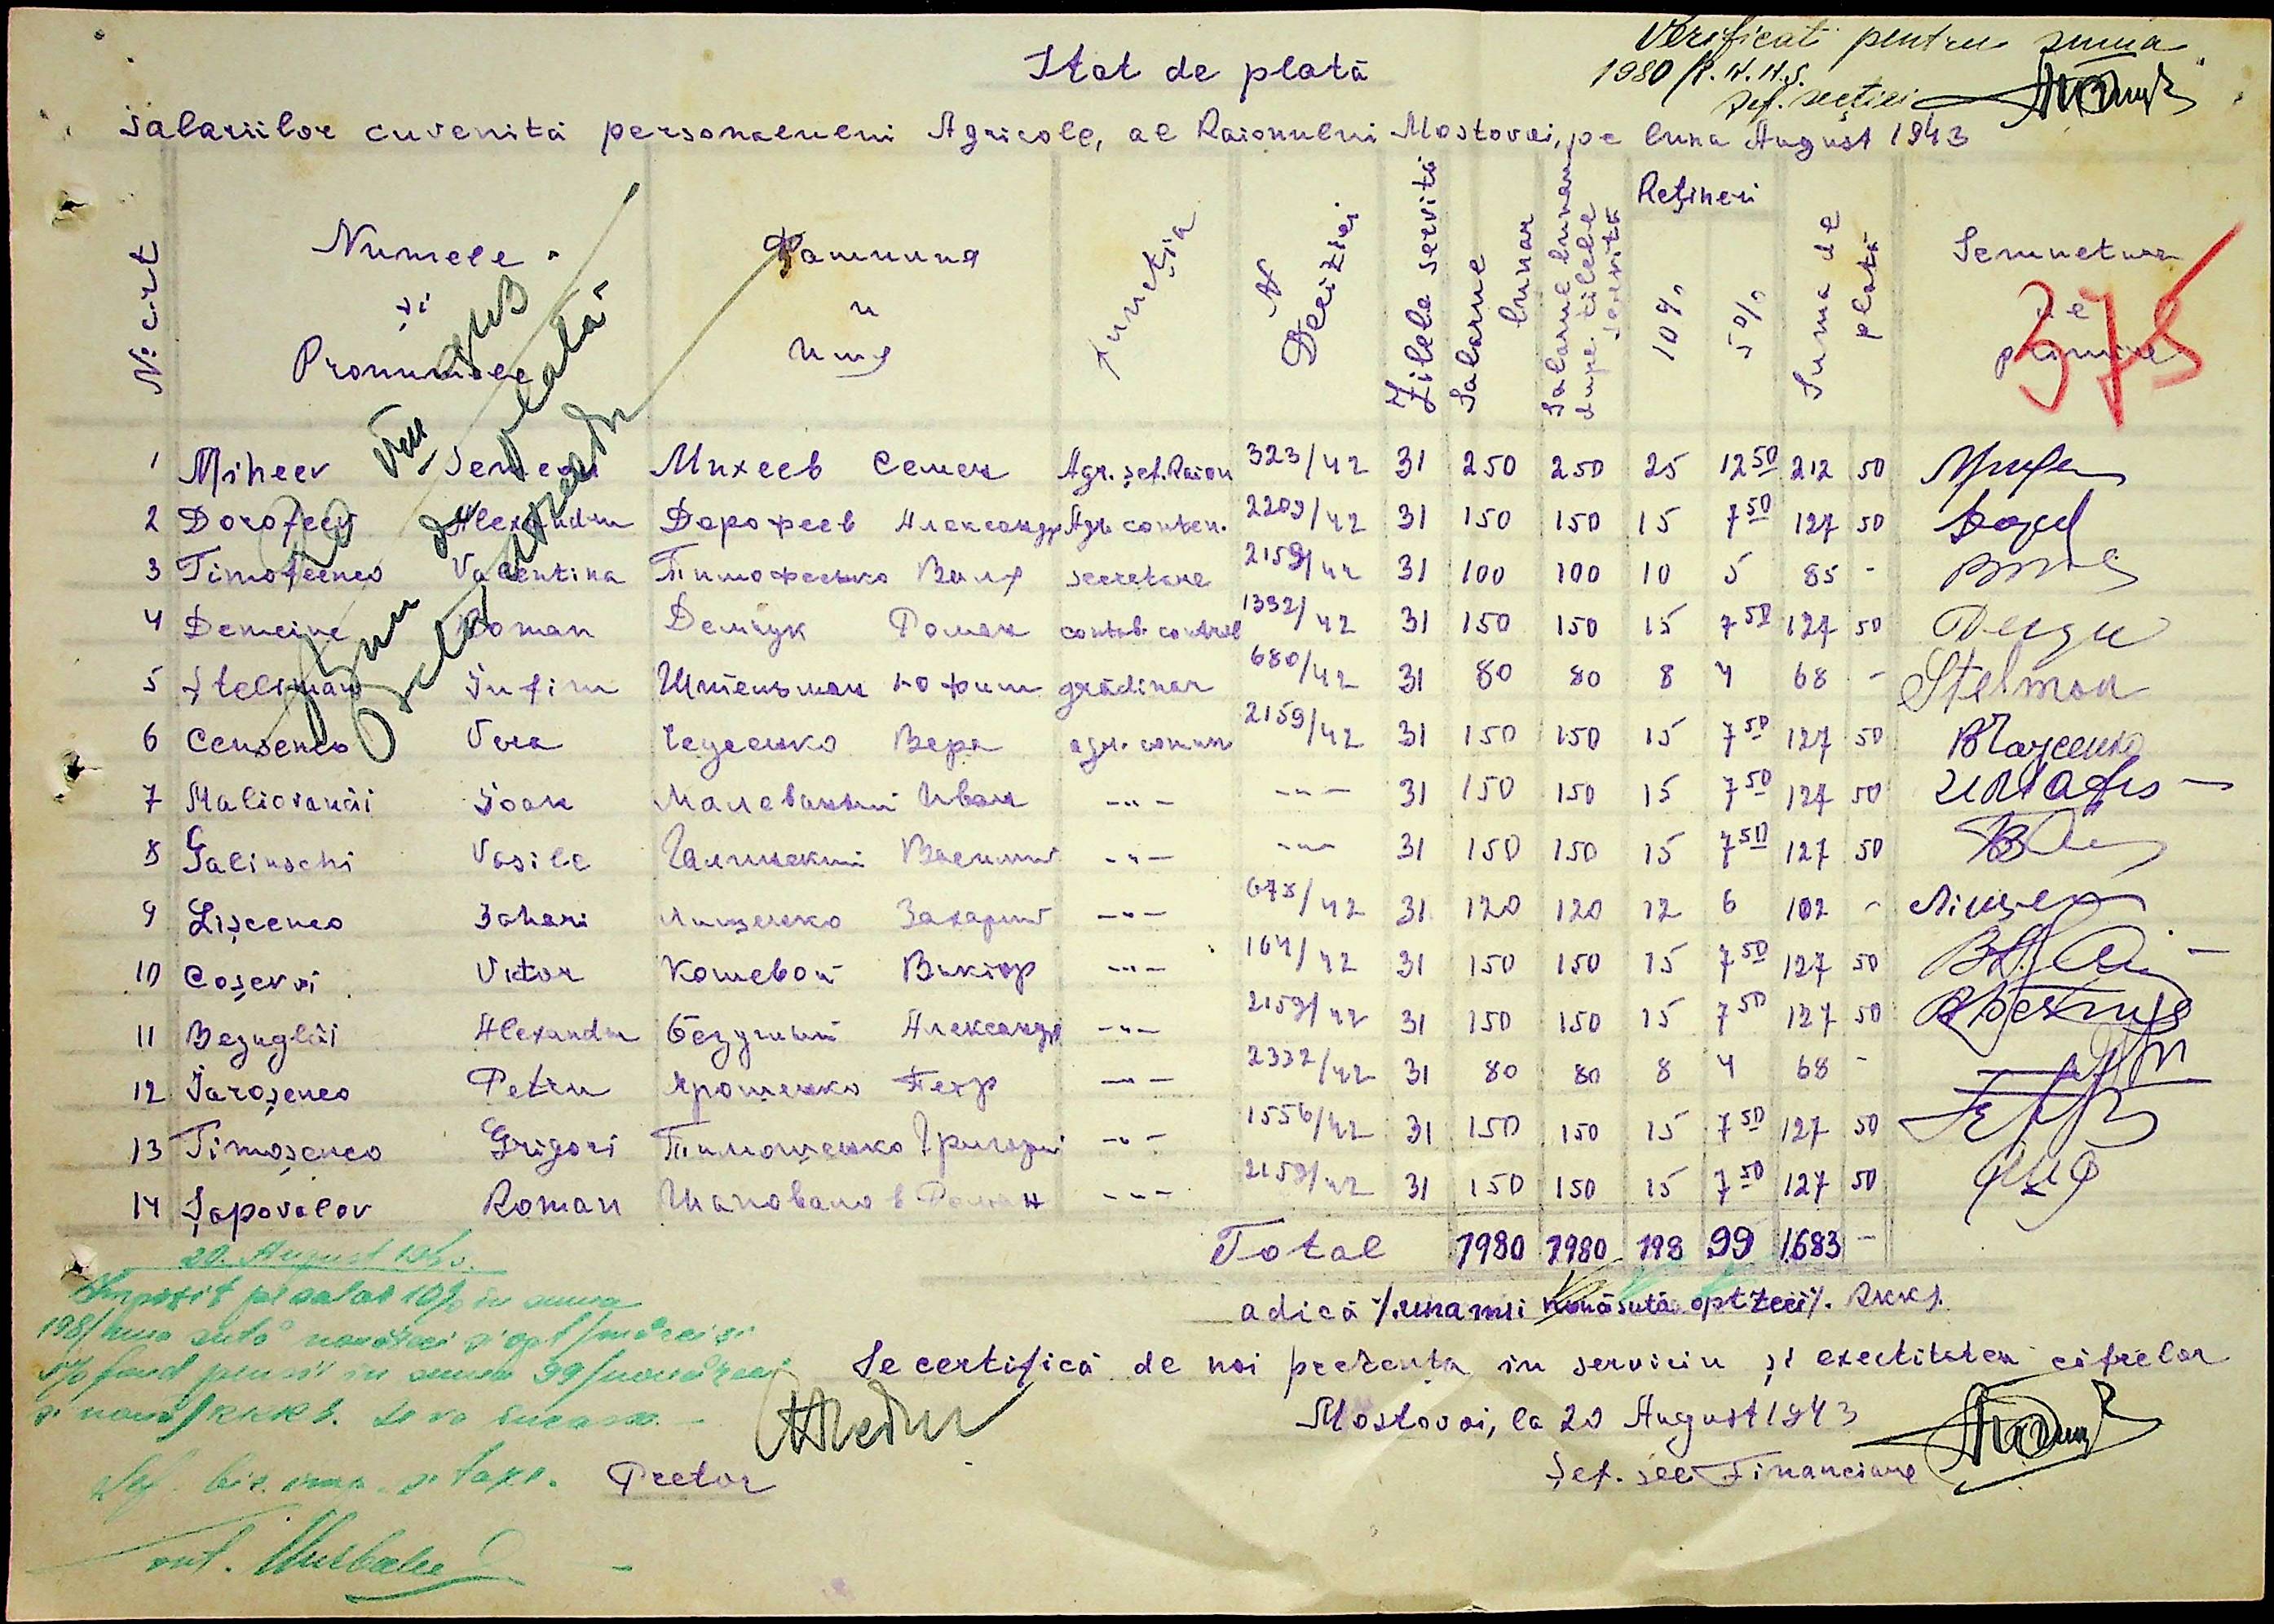 Verificat pentru suma
1980 /R.K.K.S.
Șef. secției
Stat de plată
Salariilor cuvenită personalului Agricole, al Raionului Mostovoi, pe luna August 1943
№ crt
Numele și Pronumele
Фамилия и Имя
Funcția
№ Deciziei
Zilele servită
Salarue lunar
Salarul lunar dupe zilele servită
Rețineri
10%
5%
Suma de plată
Semnetura de primire
375
1 Miheev Semeon Михеев Семен Agr. șef. Raion 323/42 31 250 250 25 12 50 212 50
2 Dorofeev Alexandru Дорофеев Александр Agr. conten. 2209/42 31 150 150 15 7 50 127 50
3 Timofeenco Valentina Тимофеенко Валя secretare 2159/42 31 100 100 10 5 85 -
4 Demciuc Roman Демчук Роман contab control 1332/42 31 150 150 15 7 50 127 50
5 Ștelman Iufim Штельман Юфим grădinar 680/42 31 80 80 8 4 68 - Stelman
6 Ceusenco Vera Чеусенко Вера agr. comun 2159/42 31 150 150 15 7 50 127 50
7 Maliovanâi Ioan Малеванный Иван -"- -"- 31 150 150 15 7 50 127 50
8 Galinschi Vasile Галинский Василий -"- -"- 31 150 150 15 7 50 127 50
9 Lișcenco Zahari Лищенко Захарий -"- 678/42 31 120 120 12 6 102 -
10 Coșevoi Victor Кошевой Виктор -"- 104/42 31 150 150 15 7 50 127 50
11 Bezuglâi Alexandru Безуглый Александр -"- 2159/42 31 150 150 15 7 50 127 50
12 Iaroșenco Petru Ярошенко Петр -"- 2332/42 31 80 80 8 4 68 -
13 Timoșenco Grigori Тимошенко Григорий -"- 1556/42 31 150 150 15 7 50 127 50
14 Șapovalov Roman Шаповалов Роман -"- 2159/42 31 150 150 15 7 50 127 50
Total 1980 1980 198 99 1.683 -
adică /.unamii nouăsută optzeci/. RKKS.
Se certifică de noi prezenta in serviciu și exectitatea cifrelor
Mostovoi, la 20 August 1943
Șef. secî Financiare
Pretor
20. August
Impozit pe salar 10% in suma
198/una sută nouăzeci și opt/mărci și
5% fond pensii in suma 99/nouăzeci
și nouă/RKKS. Se va incasa. -
Șef. bir. imp. și taxe.